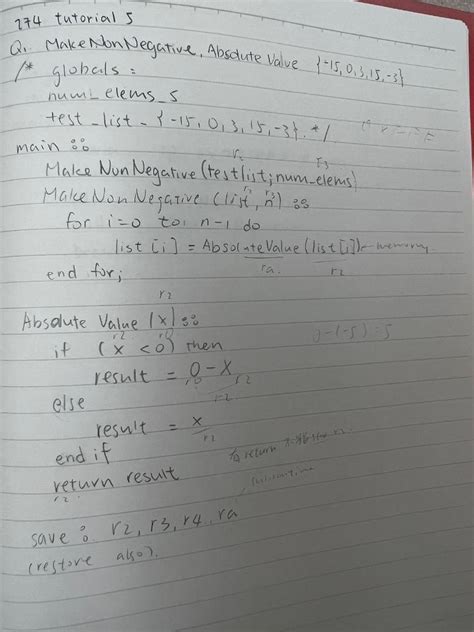 274 tutorial 5
Q. MakeNonNegative, Absolute Value {-15, 0, 3, 15, -3}
/* globals:
num_elems_5
test_list_{-15, 0, 3, 15, -3}. */
main ::
r2 r3
MakeNonNegative(testlist; num_elems)
r2 r3
MakeNonNegative (list, n) ::
for i=0 to: n-1 do
list [i] = AbsoluteValue (list[i]) - memory
ra. r2
end for;
r2
Absolute Value (x) ::
r2 r0
if (x < 0) then
result = 0 - x
r0 r2
r2
else
result = x
r2
end if
return result
r2.
save : r2, r3, r4, ra
(restore also).